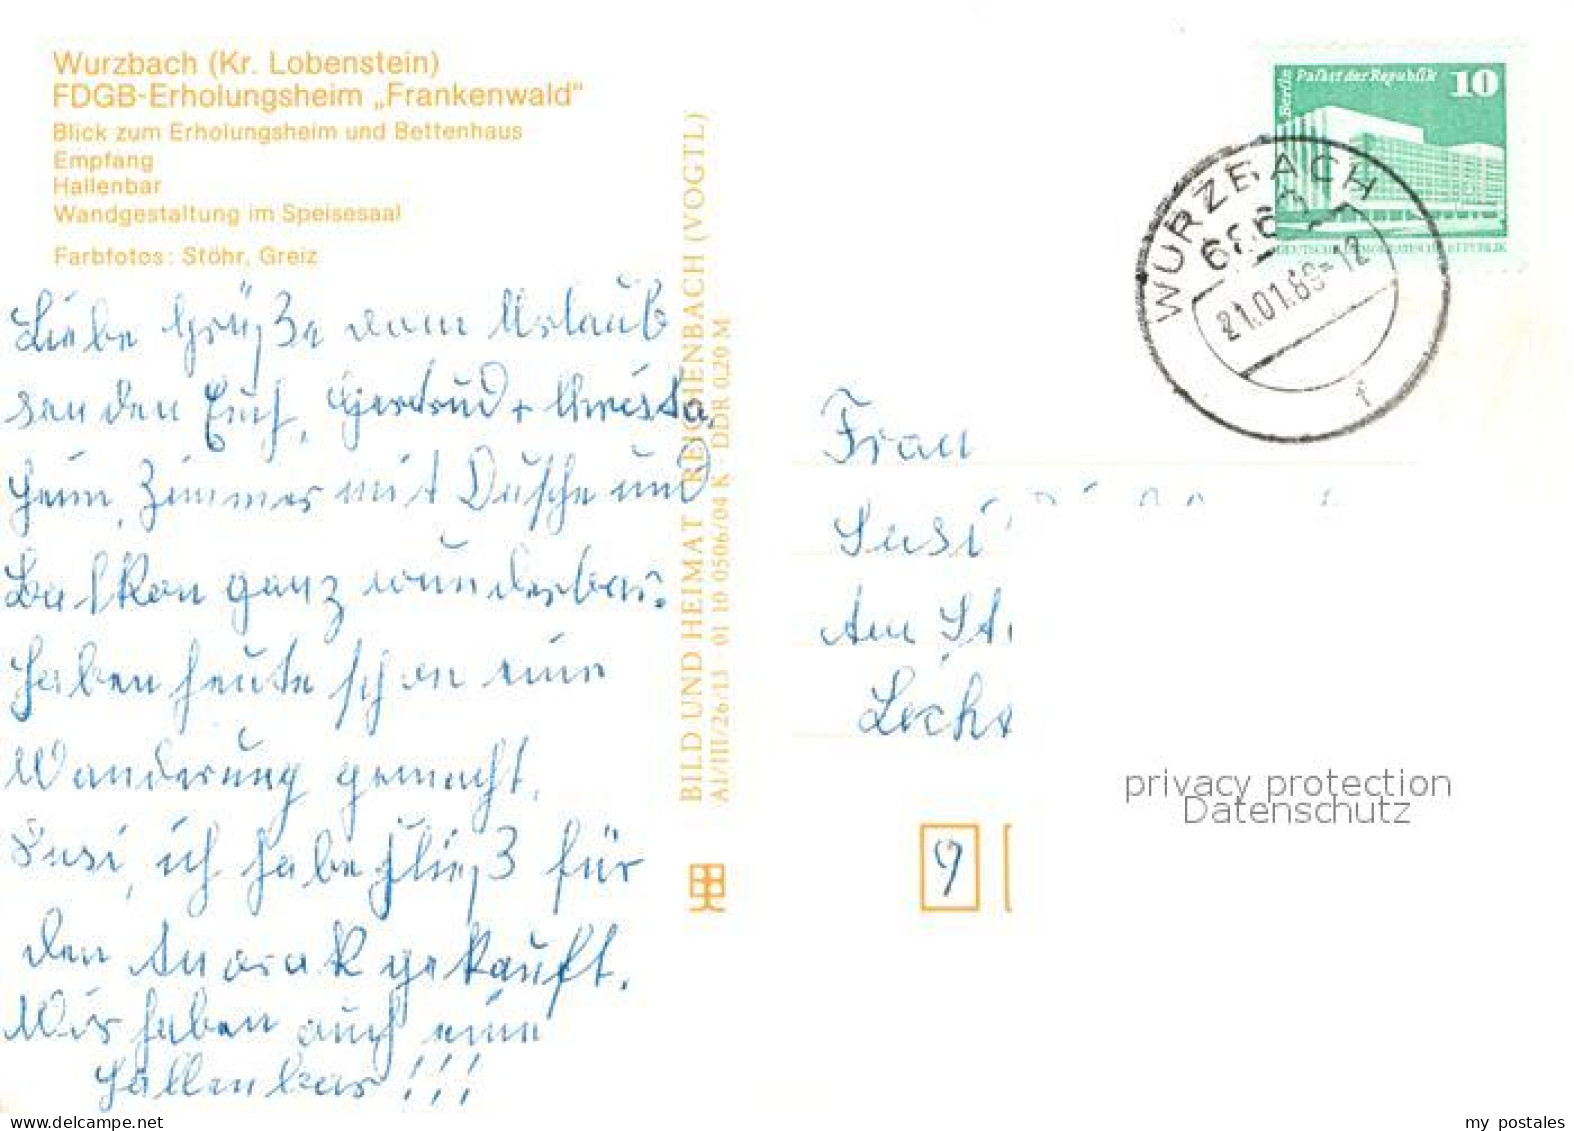 Wurzbach (Kr. Lobenstein)
FDGB-Erholungsheim „Frankenwald"
Blick zum Erholungsheim und Bettenhaus
Empfang
Hallenbar
Wandgestaltung im Speisesaal
Farbfotos: Stöhr, Greiz
Liebe Grüße vom Urlaub
senden Euch, Gertrud + Christa,
Heim, Zimmer mit Dusche und
Balkon ganz wunderbar.
Haben heute schon eine
Wanderung gemacht.
Susi, ich habe Fließ für
den Anorak gekauft.
Wir haben auch eine
Hallenbar!!!
BILD UND HEIMAT REICHENBACH (VOGTL)
A1/III/26/13 01 10 0506/04 K DDR 0,20 M
Berlin Palast der Republik 10
DEUTSCHE DEMOKRATISCHE REPUBLIK
WURZBACH
21.01.89-12
f
Frau
Susi
Am
9
privacy protection
Datenschutz
my postales